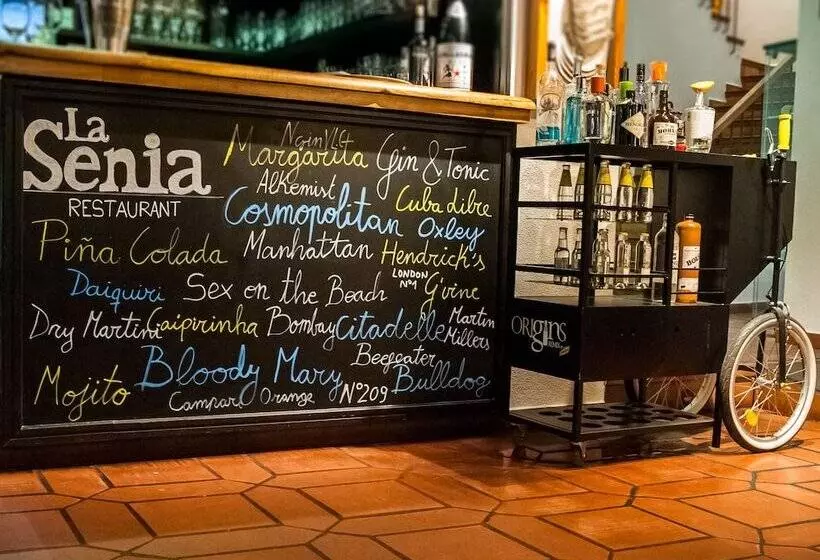 La
Senia
RESTAURANT
Ngin VLCt
Margarita
Gin & Tonic
Alkemist
Cuba dibre
Cosmopolitan
Oxley
Piña Colada
Manhattan
Hendrick's
LONDON
Nº1
G'vine
Daiquiri
Sex on the Beach
Dry Martini
Caipirinha
Bombay
Citadelle
Martin
Millers
Beefeater
Bloody Mary
Bulldog
Mojito
Campari Orange
Nº209
ORIGINS